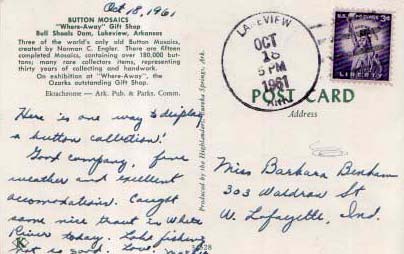 Oct 18, 1961
BUTTON MOSAICS
"Where-Away" Gift Shop
Bull Shoals Dam, Lakeview, Arkansas
Three of the world's only old Button Mosaics,
created by Norman C. Engler. There are fifteen
completed Mosaics, containing over 180,000 but-
tons; many rare collectors items, representing
thirty years of collecting and handwork.
On exhibition at "Where-Away", the
Ozarks outstanding Gift Shop.
Ektachrome — Ark. Pub. & Parks. Comm.
Here is one way to display
a button collection!
Good company, fine
weather and excellent
accomodations. Caught
some nice trout in White
River today. Lake fishing
not is good. Love,
K
Produced by the Highlander, Eureka Springs, Ark.
LAKEVIEW
OCT
18
5 PM
1961
ARK.
U.S. POSTAGE 3¢
LIBERTY
POST CARD
Address
Miss Barbara Benham
303 Waldron St
W. Lafayette, Ind.